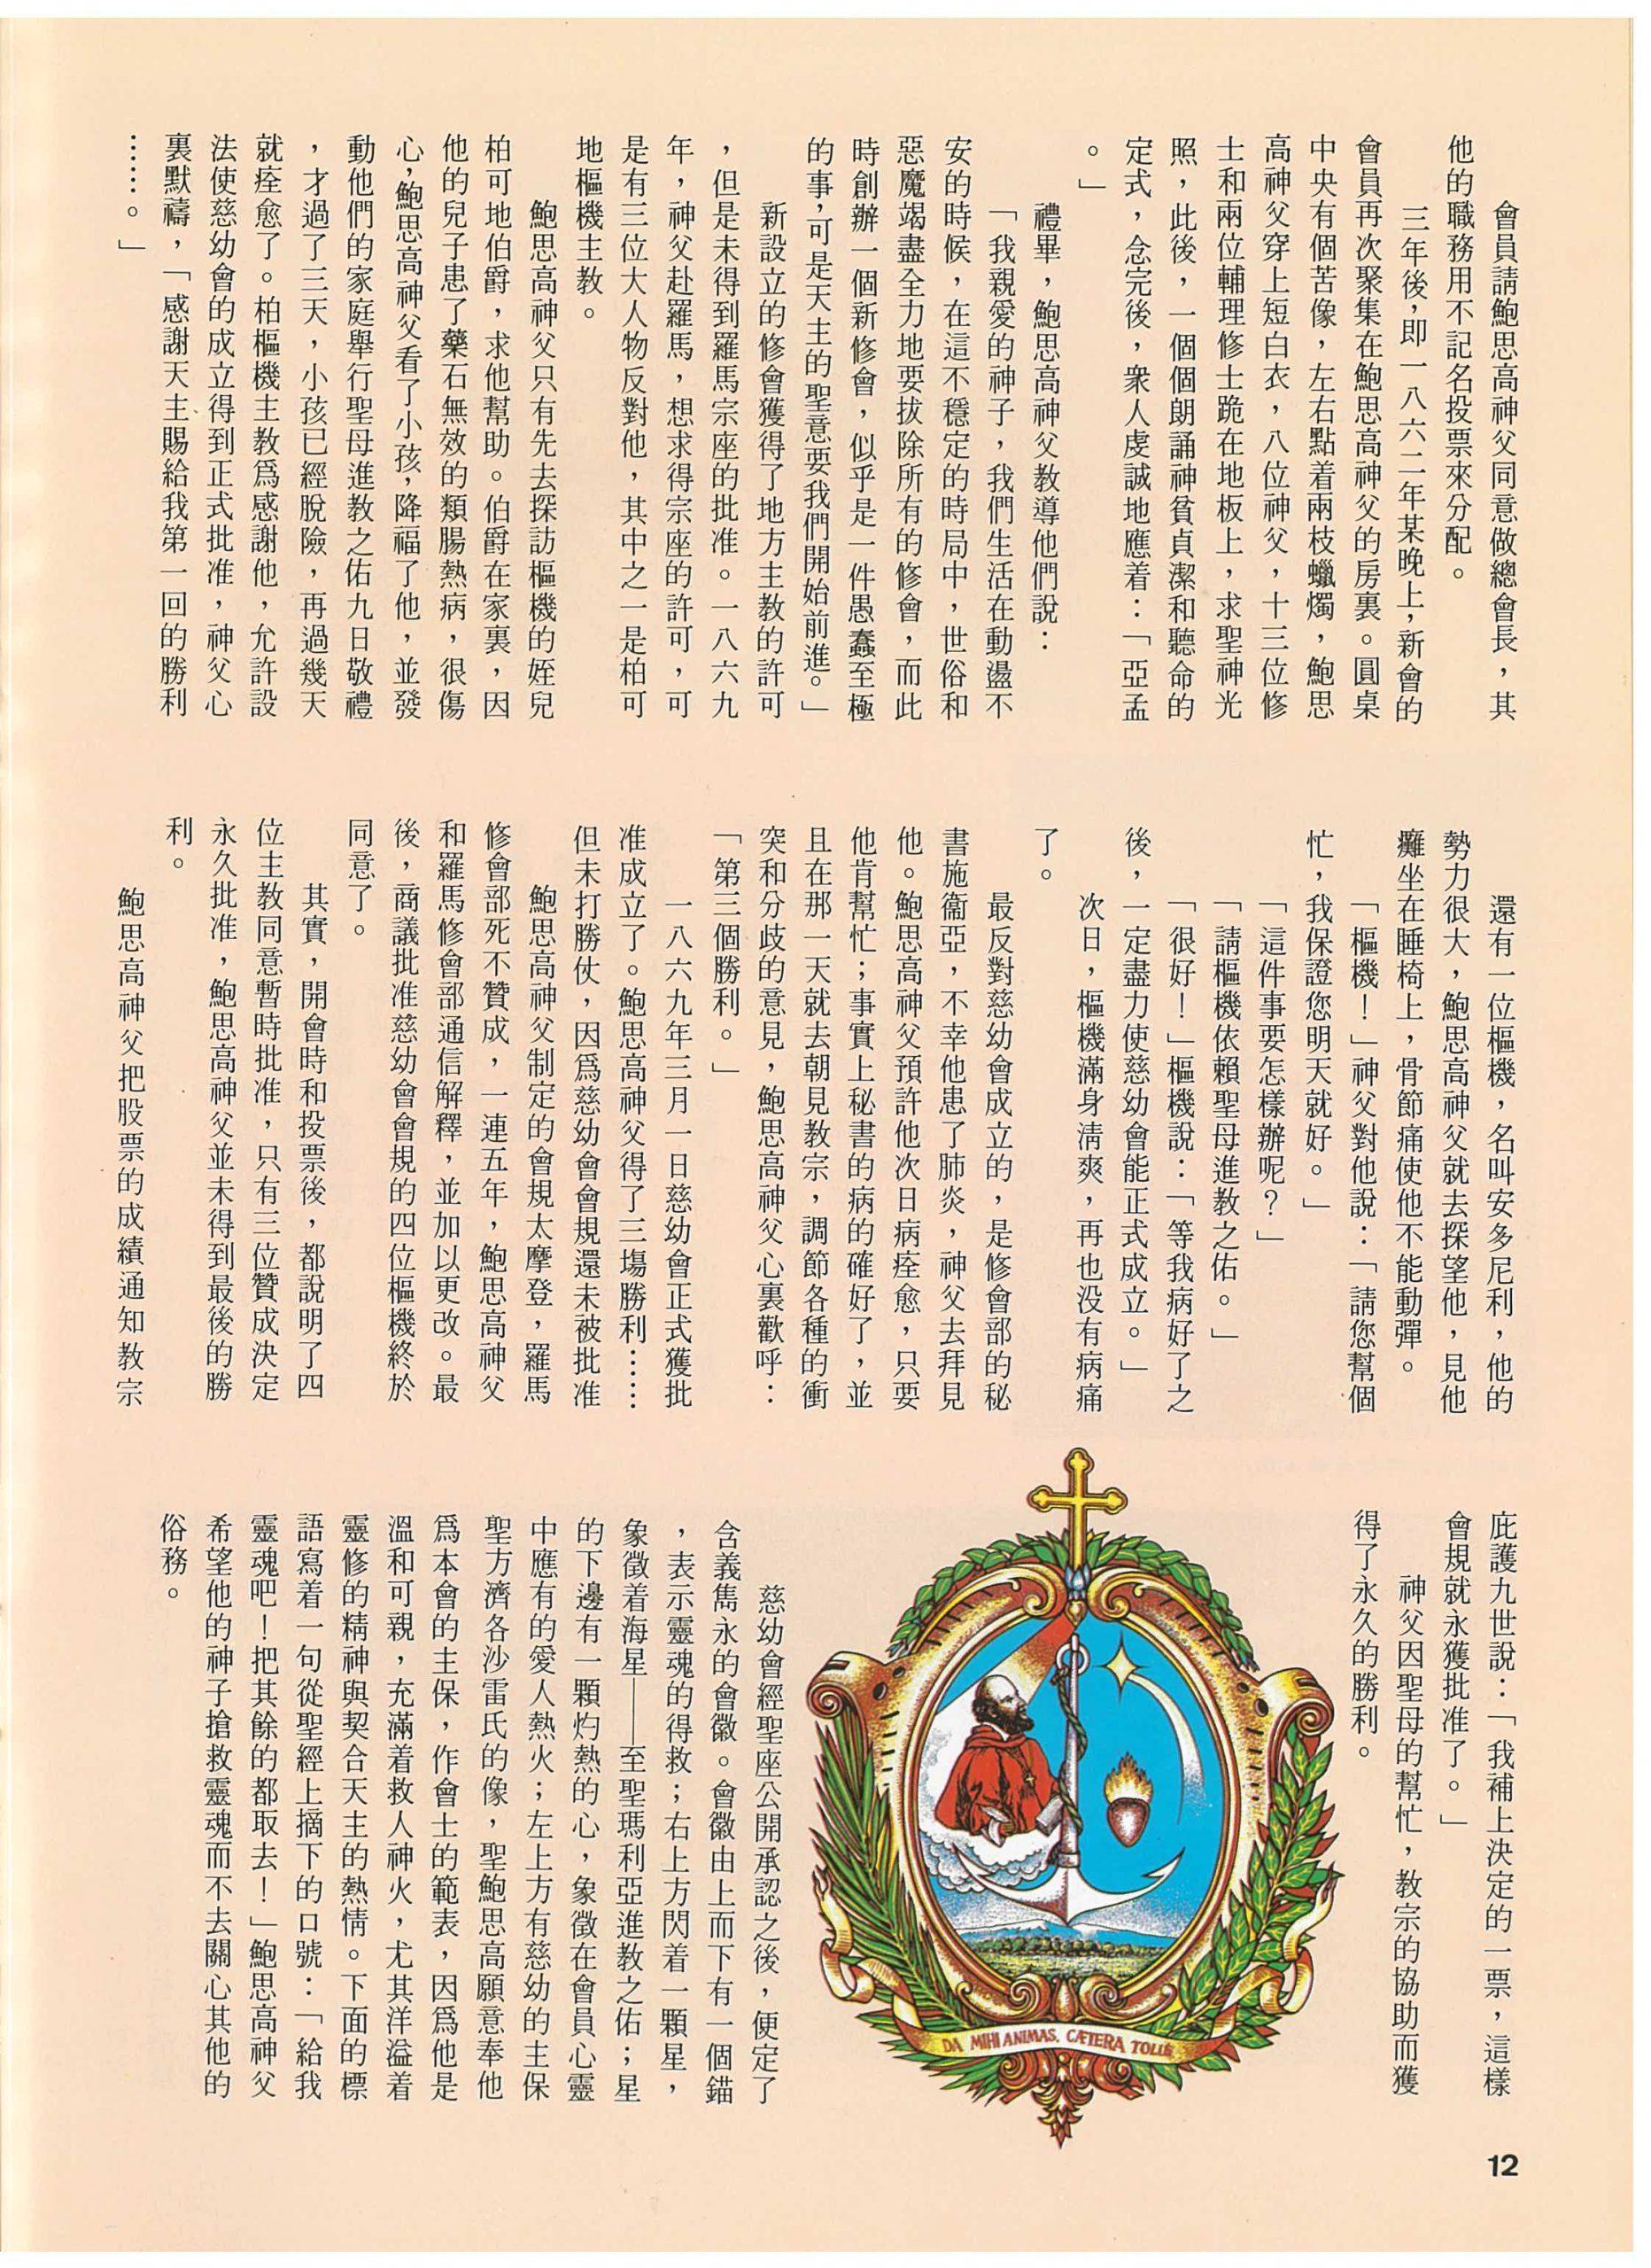 會員請鮑思高神父同意做總會長，其
他的職務用不記名投票來分配。
三年後，即一八六二年某晚上，新會的
會員再次聚集在鮑思高神父的房裏。圓桌
中央有個苦像，左右點着兩枝蠟燭，鮑思
高神父穿上短白衣，八位神父，十三位修
士和兩位輔理修士跪在地板上，求聖神光
照，此後，一個個朗誦神貧貞潔和聽命的
定式，念完後，衆人虔誠地應着：「亞孟
。」
禮畢，鮑思高神父教導他們說：
「我親愛的神子，我們生活在動盪不
安的時候，在這不穩定的時局中，世俗和
惡魔竭盡全力地要拔除所有的修會，而此
時創辦一個新修會，似乎是一件愚蠢至極
的事，可是天主的聖意要我們開始前進。」
新設立的修會獲得了地方主教的許可
，但是未得到羅馬宗座的批准。一八六九
年，神父赴羅馬，想求得宗座的許可，可
是有三位大人物反對他，其中之一是柏可
地樞機主教。
鮑思高神父只有先去探訪樞機的姪兒
柏可地伯爵，求他幫助。伯爵在家裏，因
他的兒子患了藥石無效的類腸熱病，很傷
心，鮑思高神父看了小孩，降福了他，並發
動他們的家庭舉行聖母進教之佑九日敬禮
，才過了三天，小孩已經脫險，再過幾天
就痊愈了。柏樞機主教爲感謝他，允許設
法使慈幼會的成立得到正式批准，神父心
裏默禱，「感謝天主賜給我第一回的勝利
……。」
還有一位樞機，名叫安多尼利，他的
勢力很大，鮑思高神父就去探望他，見他
癱坐在睡椅上，骨節痛使他不能動彈。
「樞機！」神父對他說：「請您幫個
忙，我保證您明天就好。」
「這件事要怎樣辦呢？」
「請樞機依賴聖母進教之佑。」
「很好！」樞機說：「等我病好了之
後，一定盡力使慈幼會能正式成立。」
次日，樞機滿身淸爽，再也没有病痛
了。
最反對慈幼會成立的，是修會部的秘
書施衞亞，不幸他患了肺炎，神父去拜見
他。鮑思高神父預許他次日病痊愈，只要
他肯幫忙；事實上秘書的病的確好了，並
且在那一天就去朝見教宗，調節各種的衝
突和分歧的意見，鮑思高神父心裏歡呼：
「第三個勝利。」
一八六九年三月一日慈幼會正式獲批
准成立了。鮑思高神父得了三塲勝利……
但未打勝仗，因爲慈幼會會規還未被批准
鮑思高神父制定的會規太摩登，羅馬
修會部死不贊成，一連五年，鮑思高神父
和羅馬修會部通信解釋，並加以更改。最
後，商議批准慈幼會會規的四位樞機終於
同意了。
其實，開會時和投票後，都說明了四
位主教同意暫時批准，只有三位贊成決定
永久批准，鮑思高神父並未得到最後的勝
利。
鮑思高神父把股票的成績通知教宗
庇護九世說：「我補上決定的一票，這樣
會規就永獲批准了。」
神父因聖母的幫忙，教宗的協助而獲
得了永久的勝利。
DA MIHI ANIMAS, CÆTERA TOLLE
慈幼會經聖座公開承認之後，便定了
含義雋永的會徽。會徽由上而下有一個錨
，表示靈魂的得救；右上方閃着一顆星，
象徵着海星——至聖瑪利亞進教之佑；星
的下邊有一顆灼熱的心，象徵在會員心靈
中應有的愛人熱火；左上方有慈幼的主保
聖方濟各沙雷氏的像，聖鮑思高願意奉他
爲本會的主保，作會士的範表，因爲他是
溫和可親，充滿着救人神火，尤其洋溢着
靈修的精神與契合天主的熱情。下面的標
語寫着一句從聖經上摘下的口號：「給我
靈魂吧！把其餘的都取去！」鮑思高神父
希望他的神子搶救靈魂而不去關心其他的
俗務。
12